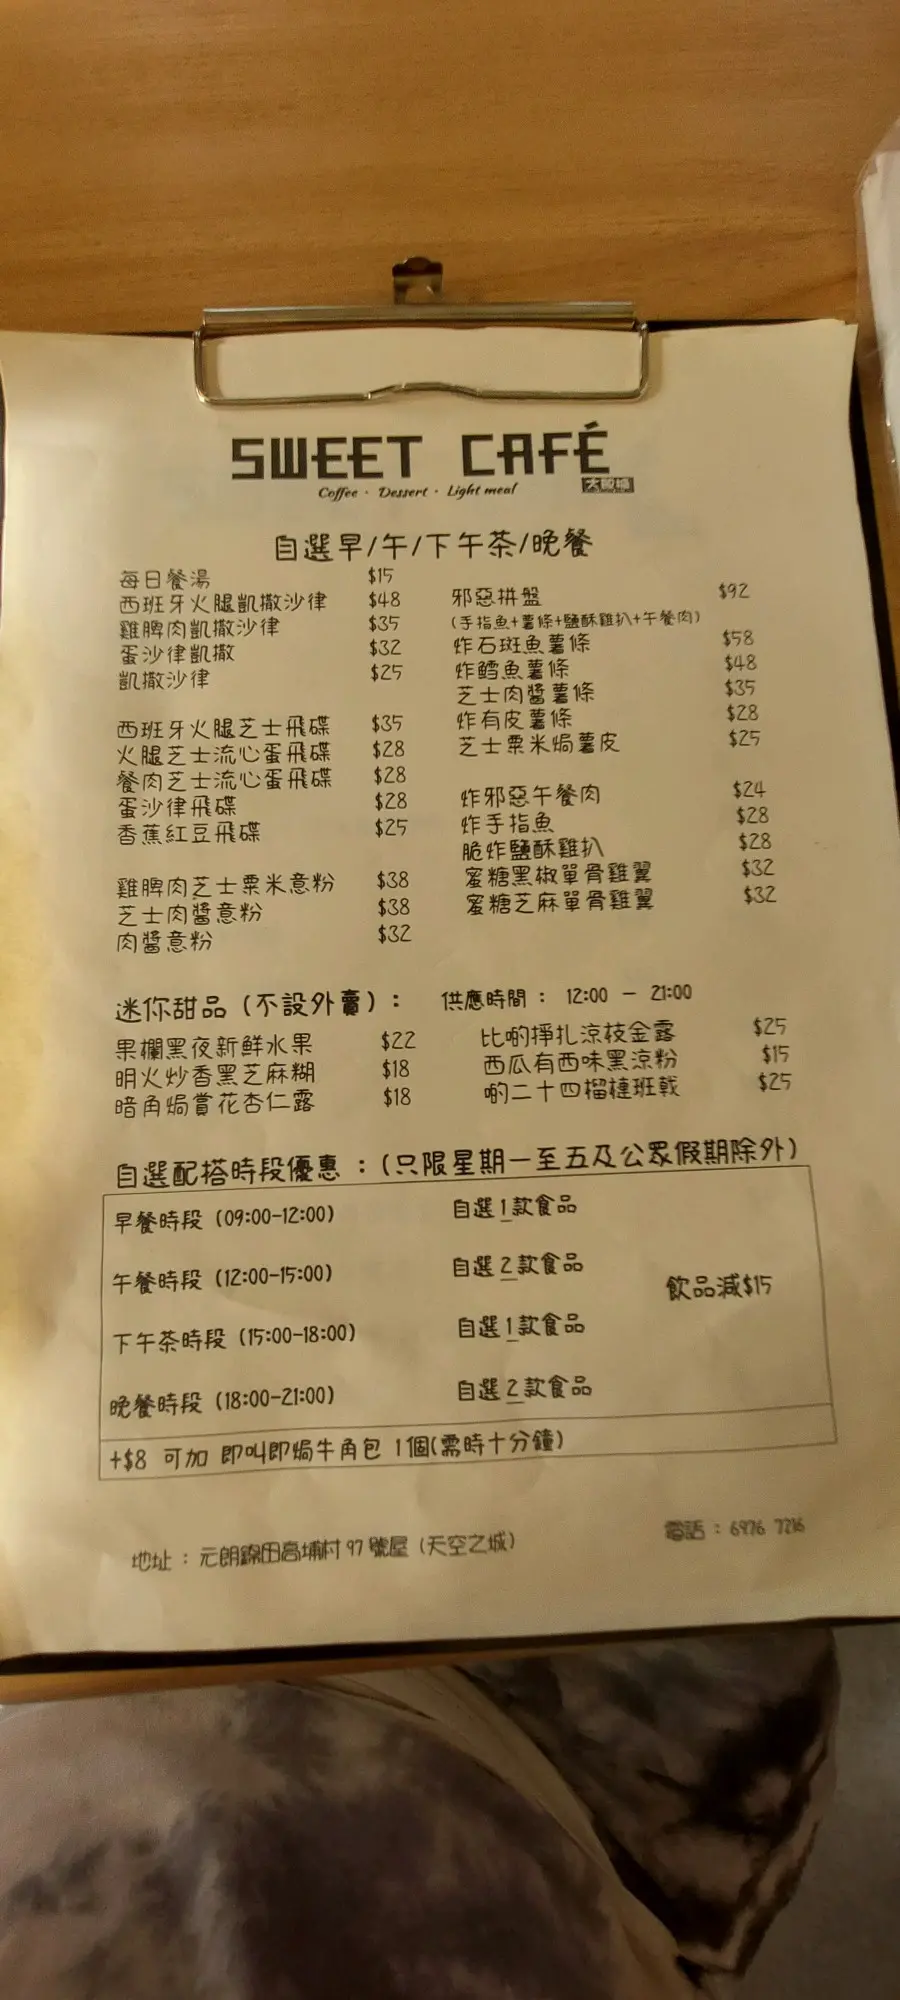 SWEET CAFÉ
Coffee · Dessert · Light meal
自選早/午/下午茶/晚餐
每日餐湯 $15
西班牙火腿凱撒沙律 $48
雞脾肉凱撒沙律 $35
蛋沙律凱撒 $32
凱撒沙律 $25
西班牙火腿芝士飛碟 $35
火腿芝士流心蛋飛碟 $28
餐肉芝士流心蛋飛碟 $28
蛋沙律飛碟 $28
香蕉紅豆飛碟 $25
雞脾肉芝士粟米意粉 $38
芝士肉醬意粉 $38
肉醬意粉 $32
邪惡拼盤 $92
(手指魚+薯條+鹽酥雞扒+午餐肉)
炸石斑魚薯條 $58
炸鱈魚薯條 $48
芝士肉醬薯條 $35
炸有皮薯條 $28
芝士粟米焗薯皮 $25
炸邪惡午餐肉 $24
炸手指魚 $28
脆炸鹽酥雞扒 $28
蜜糖黑椒單骨雞翼 $32
蜜糖芝麻單骨雞翼 $32
迷你甜品 (不設外賣) : 供應時間 : 12:00 - 21:00
果欄黑夜新鮮水果 $22
明火炒香黑芝麻糊 $18
暗角焗賞花杏仁露 $18
比啲掙扎涼枝金露 $25
西瓜有西味黑涼粉 $15
啲二十四榴槤班戟 $25
自選配搭時段優惠 : (只限星期一至五及公眾假期除外)
早餐時段 (09:00-12:00) 自選1款食品
午餐時段 (12:00-15:00) 自選2款食品
飲品減$15
下午茶時段 (15:00-18:00) 自選1款食品
晚餐時段 (18:00-21:00) 自選2款食品
+$8 可加 即叫即焗牛角包 1個(需時十分鐘)
地址 : 元朗錦田高埔村 97 號屋 (天空之城)
電話 : 6976 7216